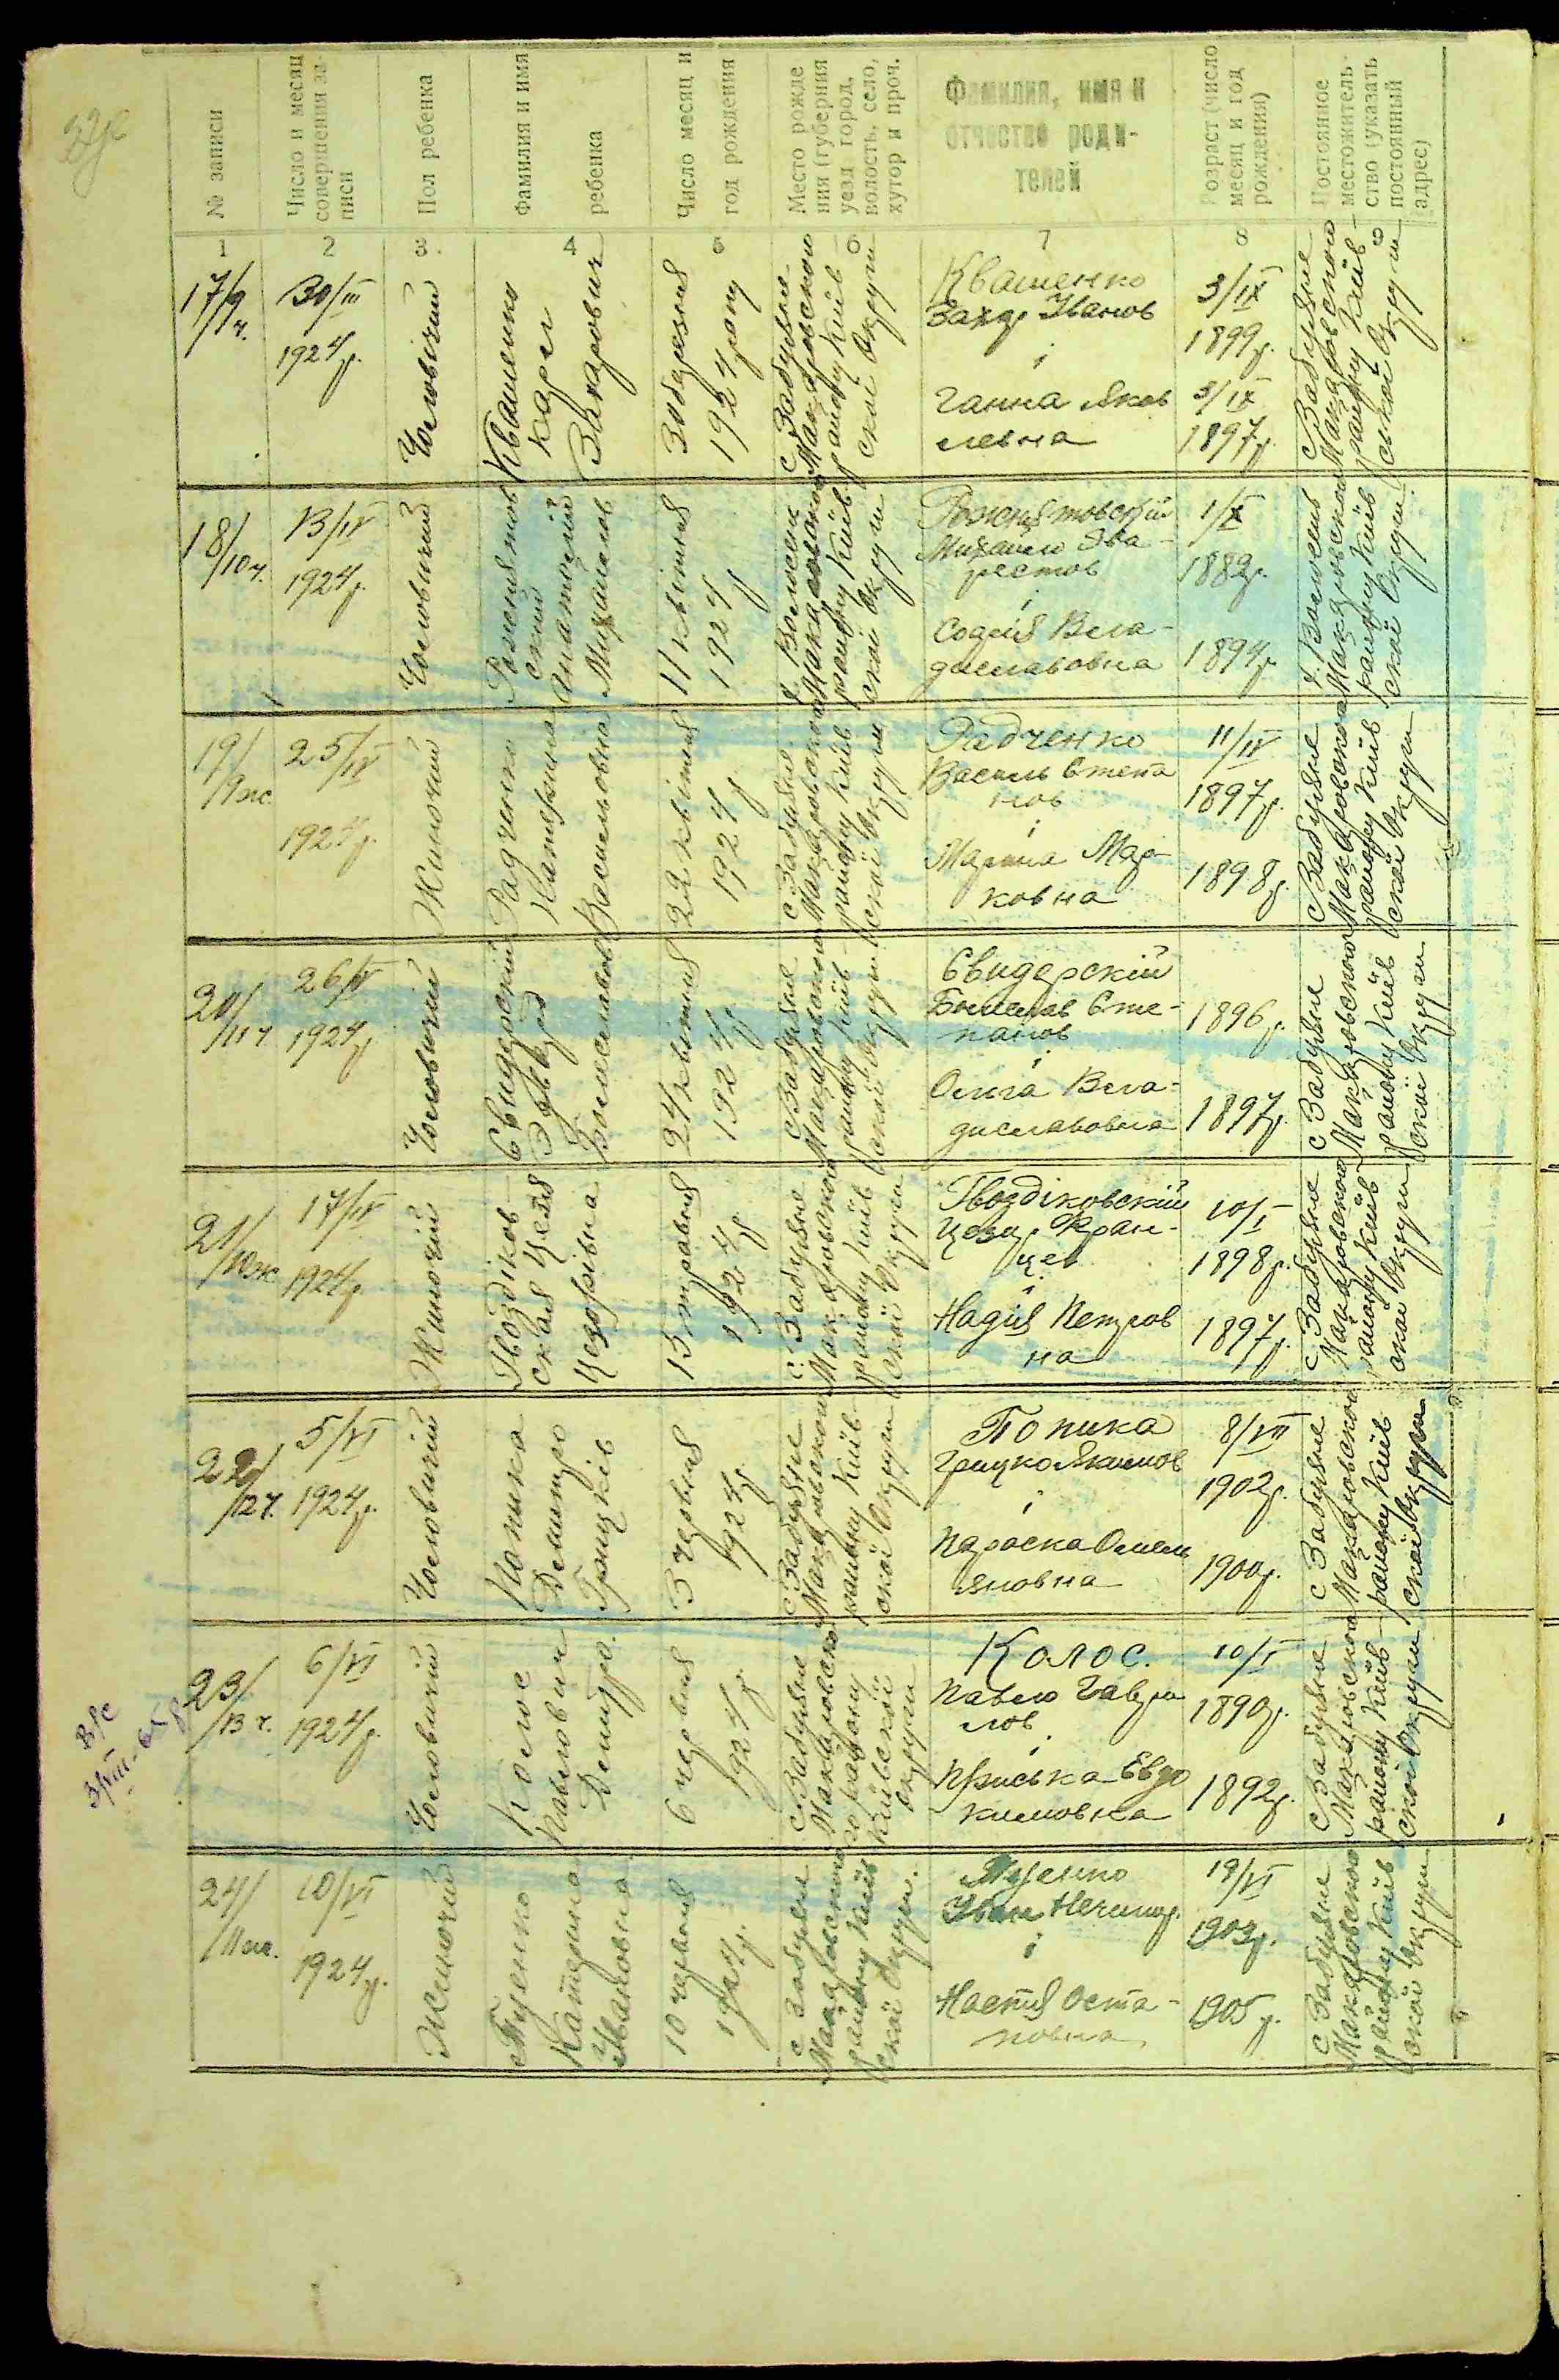 № записи
Число и месяц
совершения за-
писи
Пол ребенка
Фамилия и имя
ребенка
Число месяц и
год рождения
Место рожде
ния (губерния
уезд город,
волость, село,
хутор и проч.
Фамилия, имя и
отчество роди-
телей
Возраст (число
месяц и год
рождения)
Постоянное
местожитель-
ство (указать
постоянный
адрес)
1 2 3 4 5 6 7 8 9
17/9ч.
30/III
1924 р.
Чоловічий
Квашенко
Карл
Захарович
30 березня
1924 року
с Забуяне
Макаровского
району Київ-
ской Округи
Квашенко
Захар Иванов
і
Ганна Яков
левна
3/IX
1899 р.
3/IX
1897 р.
с Забуяне
Макаровского
району Київ-
ской Округи
18/10ч.
13/IV
1924 р.
Чоловічий
Рожнятов
ский
Анатолій
Михайлов
11 квітня
1924 р
Макаровского
району Київ-
ской Округи
Рожнятовскій
Михайло Эва-
рестов
і
Софія Вла-
диславовна
1/X
1882 р.
1894 р
Макаровского
району Київ
ской Округи
19/9ж
25/IV
1924 р.
Жиночий
Радченко
Катерина
Васильовна
22 квітня
1924 р
с Забуяне
Макаровского
району Київ
ской Округи
Радченко
Василь Степа
нов
і
Марина Мар-
ковна
11/IV
1897 р.
1898 р
с Забуяне
Макаровского
району Київ
ской Округи
20/11ч
26/IV
1924 р
Чоловічий
Свидерскій
Эдвард
Болеславов
24 квітня
1924 р
с Забуяне
Макаровского
району Київ-
ской Округи
Свидерскій
Болеслав Сте-
панов
і
Ольга Вла-
диславовна
1896 р.
1897 р.
с Забуяне
Макаровского
району Київ
ской Округи
21/10ж
17/IV
1924 р
Жиночій
Гвоздіков-
ская
Цезорівна
15 травня
1924 р
с. Забуяне
Макаровского
району Київ
ской Округи
Гвоздіковскій
Цезар Фран-
цев
і
Надія Петров
на
10/I
1898 р.
1897 р.
с Забуяне
Макаровского
району Київ
ской Округи
22/12ч.
5/VI
1924 р.
Чоловічий
Копика
Демитро
Грицків
3 червня
1924 р.
с Забуяне
Макаровского
району Київ-
ской Округи
Копика
Грицко Якимов
і
Параска Омель
яновна
8/VII
1902 р.
1900 р.
с Забуяне
Макаровского
району Київ
ской Округи
23/13ч.
6/VI
1924 р.
Чоловічий
Колос
Павлович
Демитро.
6 червня
1924 р
с Забуяне
Макаровско
го району
Київської
Округи
Колос.
Павло Гаври
лов
і
Пріська Евдо
кимовна
10/I
1890 р.
1892 р.
с Забуяне
Макаровского
району Київ-
ской Округи
24/11ж.
10/VI
1924 р.
Жиночий
Катерина
Ивановна
10 червня
1924 р.
с Забуяне
Макаровского
району Київ
ской Округи.
Иван Нечипор.
і
Настя Оста-
повна
19/VI
1903 р.
1905 р.
с Забуяне
Макаровского
району Київ
ской Округи